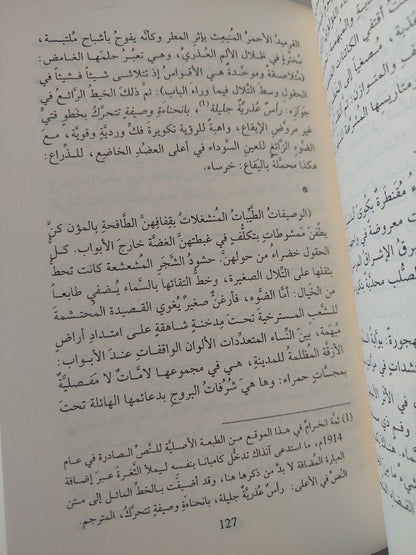 القرميد الأحمرُ المنبعِثُ بإثرِ المطر وكأنَّه يفوحُ بأشباح ملتبسة،
مُحْتَرِقةٍ في ظلال الألم العذريّ، وهي تعبُرُ حلمَها الغامض:
مُتلاصقةً وموحَّدةً هي الأقواسُ إذ تتلاشى شيئاً فشيئاً في
الحقول وسطَ التِّلال (فيما وراء الباب): ثم ذلك الخيط الرائعُ في
جوارَه: رأسٌ عُذريَّةٌ جليلة(1)، بانحناءةٍ وصيفةٍ تتحرَّكُ بخطوٍ فتيّ
غيرِ مروَّض الإيقاع، واهبةً للرؤية تكويرةَ فكٍّ ورديَّةً وقويَّة، مع
الضوء الزّائغ للعين السَّوداء في أعلى العضُد الخاضِع، للذراع:
هكذا محمَّلةً باليَفَاع: خرساء.
*
(الوصيفات الطيِّبات المنشغلات بِقِفافِهنَّ الطَّافحةِ بالمؤن كنَّ
يطفْنَ مَمْشوطاتٍ بتكلُّفٍ في غبطتهنَّ الغضَّة خارجَ الأبواب. كلُّ
الحقول خضراءُ من حولهنَّ. حشودُ الشَّجَر المُشعشعة كانت تحطُّ
بثقلها على التِّلال الصغيرة، وخطُّ التِّلال بالسَّماء يُضفي طابعاً
من الخَيال: أمَّا الضَّوء، فأرغنٌ صغير يُغوي القصيدةَ المحتشمةَ
للشَّعب المسترخية تحتَ مِدخنةٍ شاهقةٍ على امتدادِ أراضٍ
مُبهَمة، بينَ النِّساء المتعدِّدات الألوان الواقفاتِ عندَ الأبواب:
الأزقَّة المُظلمةُ للمدينةِ، هي في مجموعها لاماتٌ لا مَفصليَّةٌ
بمجسَّاتٍ حمراء: وها هي شُرُفاتُ البروج بدعائمها الهائلة تحتَ
(1) ثمة انخرامٌ في هذا الموقع من الطبعة الأصليَّة للنَّصّ الصادرة في عام
1914م، ما استدعى آنذاك تدخُّل كامبانا بنفسه ليملأ الثغرةَ عبرَ إضافة
العبارة المضافة لا بدَّ من ذكرها هنا، وقد أضيفَت بالخطِّ المائل إلى متن
النصّ في الأعلى: رأسٌ عُذريَّةٌ جليلة، بانحناءةٍ وصيفةٍ تتحرَّك. المترجم.
127